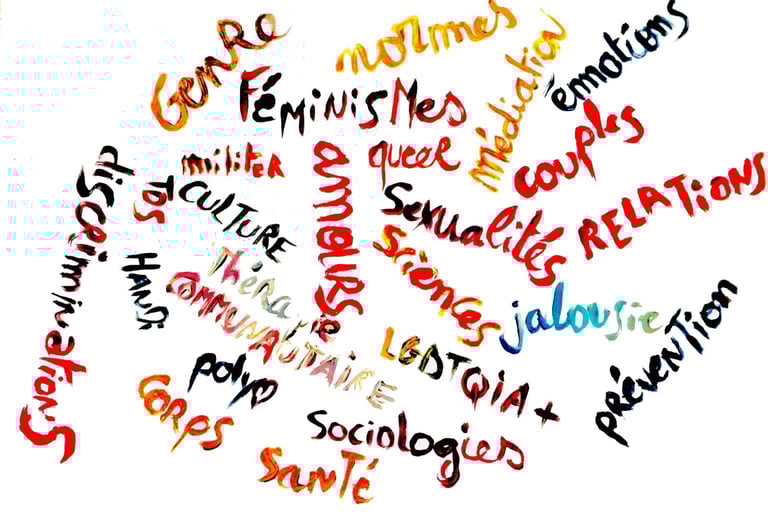 Genre
normes
émotions
Féminismes
médiation
couples
militer
queer
amours
discriminations
TDS
CULTURE
Sexualités
RELATIONS
Handi
Thérapie
COMMUNAUTAIRE
Sciences
jalousie
prévention
polya
LGBTQIA+
corps
Sociologies
Santé